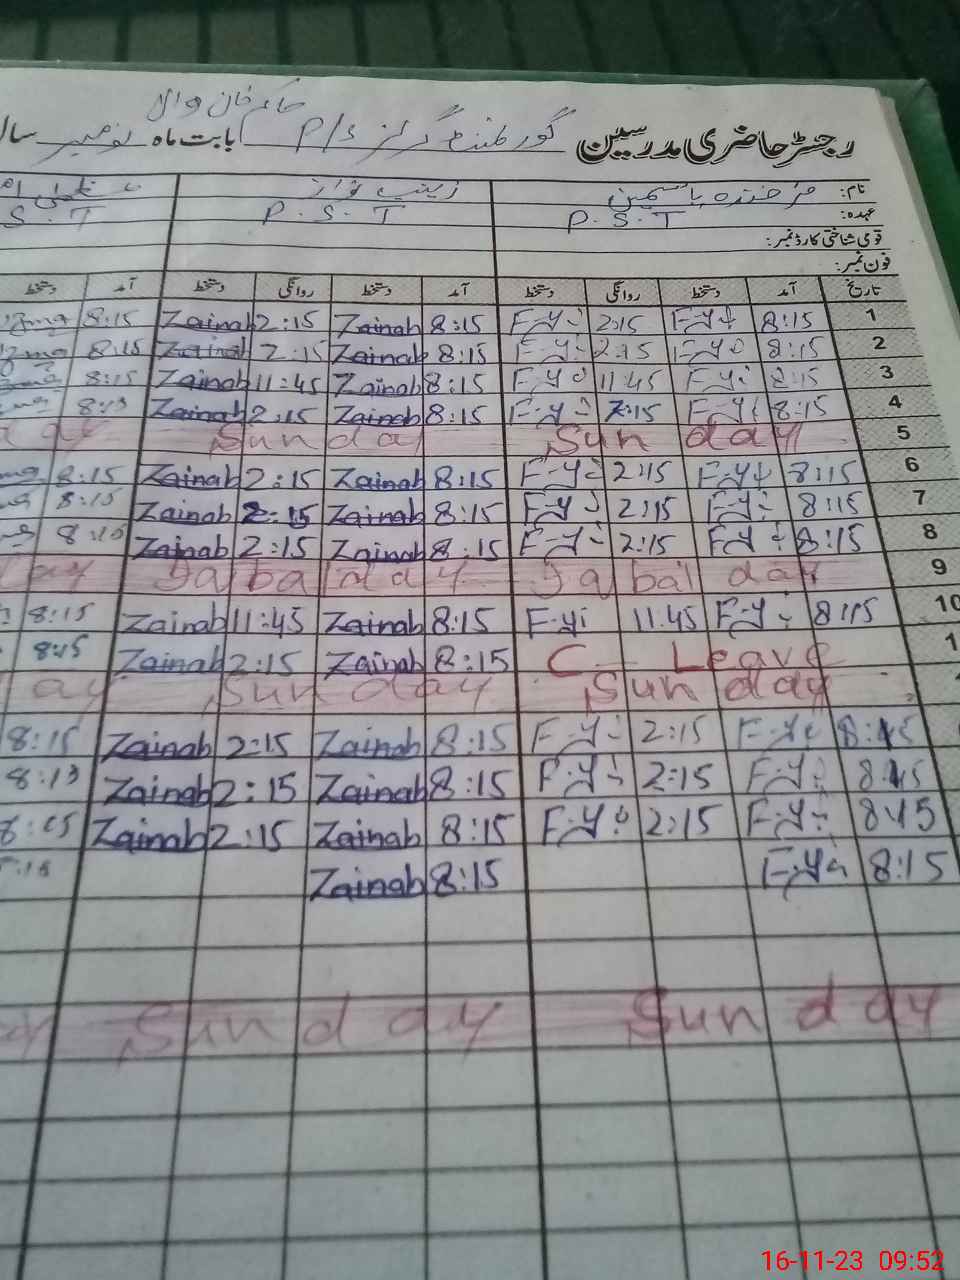 حاکم خان والا
رجسٹر حاضری مدرسین گورنمنٹ گرلز P/S بابت ماہ نومبر سال
نام: فرخندہ یاسمین زینب نواز
عہدہ: P.S.T P.S.T S.T
قومی شناختی کارڈ نمبر:
فون نمبر:
تاریخ آمد دستخط روانگی دستخط آمد دستخط روانگی دستخط آمد دستخط
1 8:15 F.Y 2:15 F.Y 8:15 Zainab 2:15 Zainab 8:15
2 8:15 F.Y 2:15 F.Y 8:15 Zainab 2:15 Zainab 8:15
3 8:15 F.Y 11:45 F.Y 8:15 Zainab 11:45 Zainab 8:15
4 8:15 F.Y 2:15 F.Y 8:15 Zainab 2:15 Zainab 8:15
5 Sunday Sunday day
6 8:15 F.Y 2:15 F.Y 8:15 Zainab 2:15 Zainab 8:15
7 8:15 F.Y 2:15 F.Y 8:15 Zainab 2:15 Zainab 8:15
8 8:15 F.Y 2:15 F.Y 8:15 Zainab 2:15 Zainab 8:15
9 Iqbal day Iqbal day day
10 8:15 F.Y 11:45 F.Y 8:15 Zainab 11:45 Zainab 8:15
1 C Leave 8:15 Zainab 2:15 Zainab 8:15
Sunday Sunday ay
8:15 F.Y 2:15 F.Y 8:15 Zainab 2:15 Zainab 8:15
8:15 F.Y 2:15 F.Y 8:15 Zainab 2:15 Zainab 8:15
8:15 F.Y 2:15 F.Y 8:15 Zainab 2:15 Zainab 8:15
8:15 F.Y 8:15 Zainab
Sunday Sunday
16-11-23 09:52